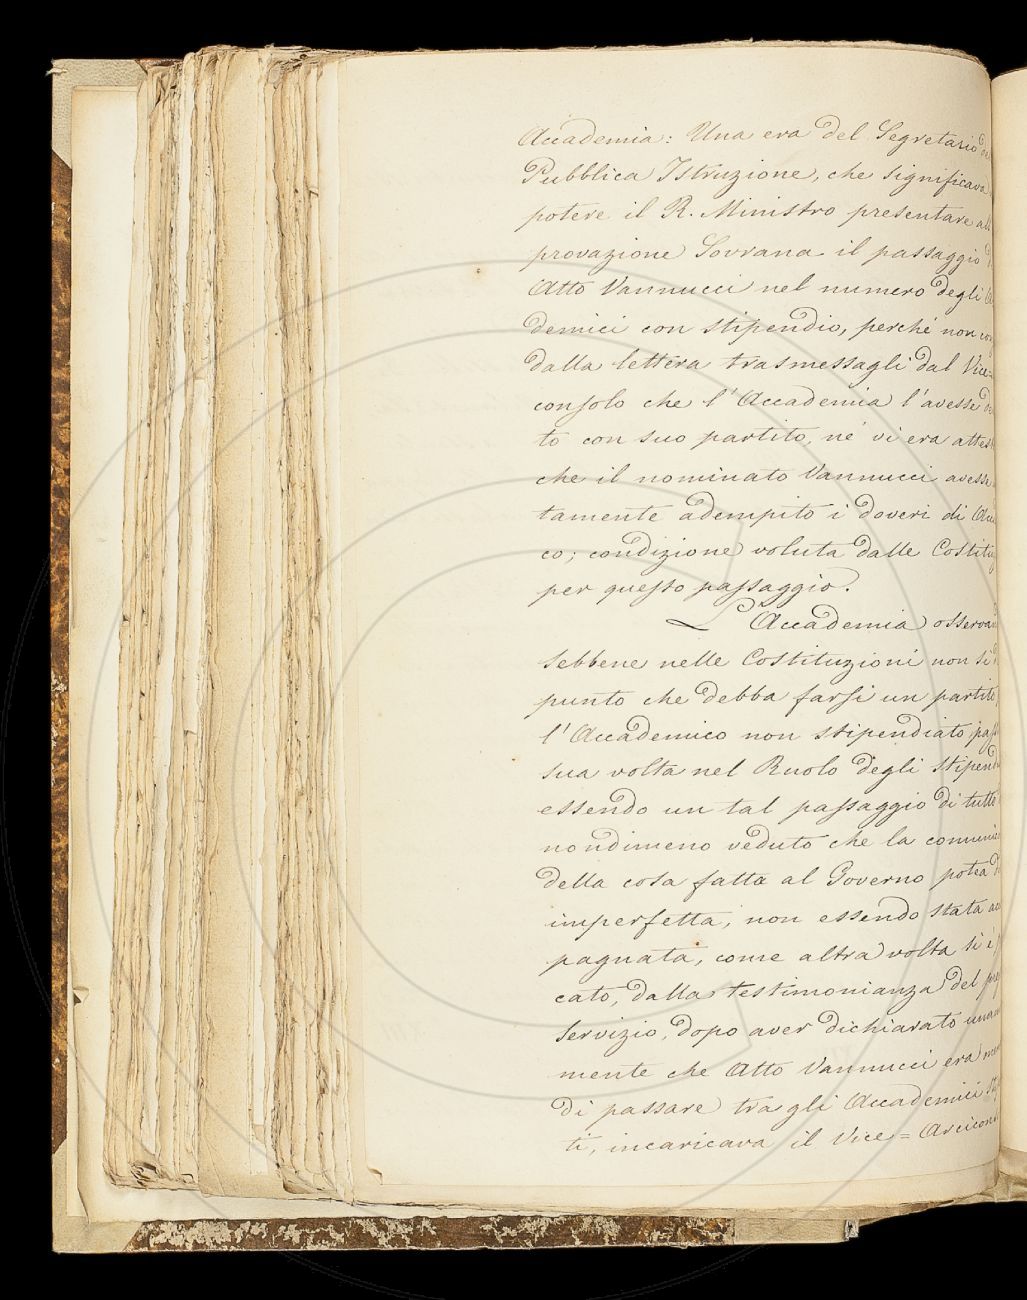 Accademia: Una era del Segretario
Pubblica Istruzione, che significava
potere il R. Ministro presentare
provazione Sovrana il passaggio
Atto Vannucci nel numero degli
demici con stipendio, perché non
dalla lettera trasmessagli dal Vice=
consolo che l'Accademia l'avesse
to con suo partito, né vi era
che il nominato Vannucci avesse
tamente adempito i doveri di
co; condizione voluta dalle
per questo passaggio.
L'Accademia
sebbene nelle Costituzioni non si
punto che debba farsi un partito
l'Accademico non stipendiato
sua volta nel Ruolo degli
essendo un tal passaggio di tutto
nondimeno veduto che la
della cosa fatta al Governo potea
imperfetta, non essendo stata
pagnata, come altra volta si è
cato, dalla testimonianza del
servizio, dopo aver dichiarato
mente che Atto Vannucci era
di passare tra gli Accademici
ti, incaricava il Vice=